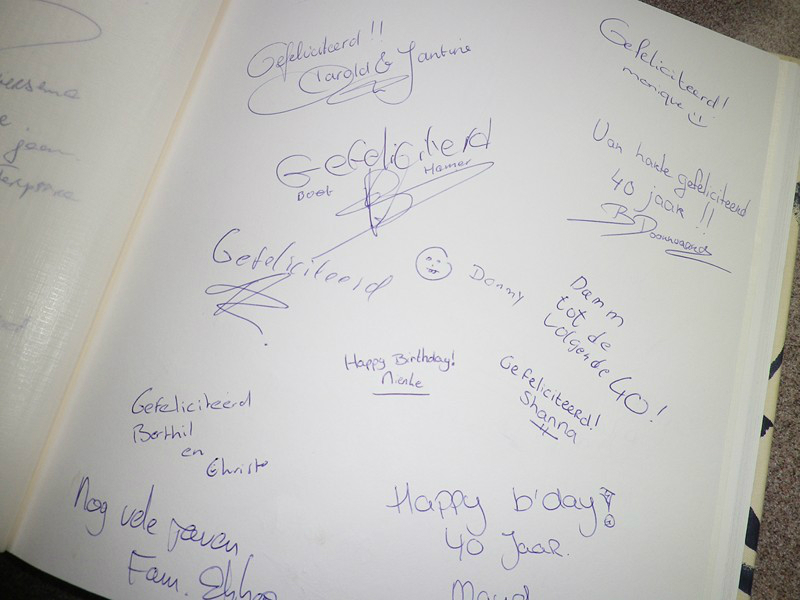 Gefeliciteerd!!
Harold & Jantine
Gefeliciteerd!
monique
Gefeliciterd
Doet Hamer
Van harte gefeliciteerd
40 jaar!!
B Doornewaard
Gefeliciteerd
Donny
Damn
tot de
volgende 40!
Happy Birthday!
Nienke
Gefeliciteerd!
Shanna
Gefeliciteerd
Berthil
en
Christ
Nog vele jaren
Fam.
Happy b'day!
40 Jaar.
Maud